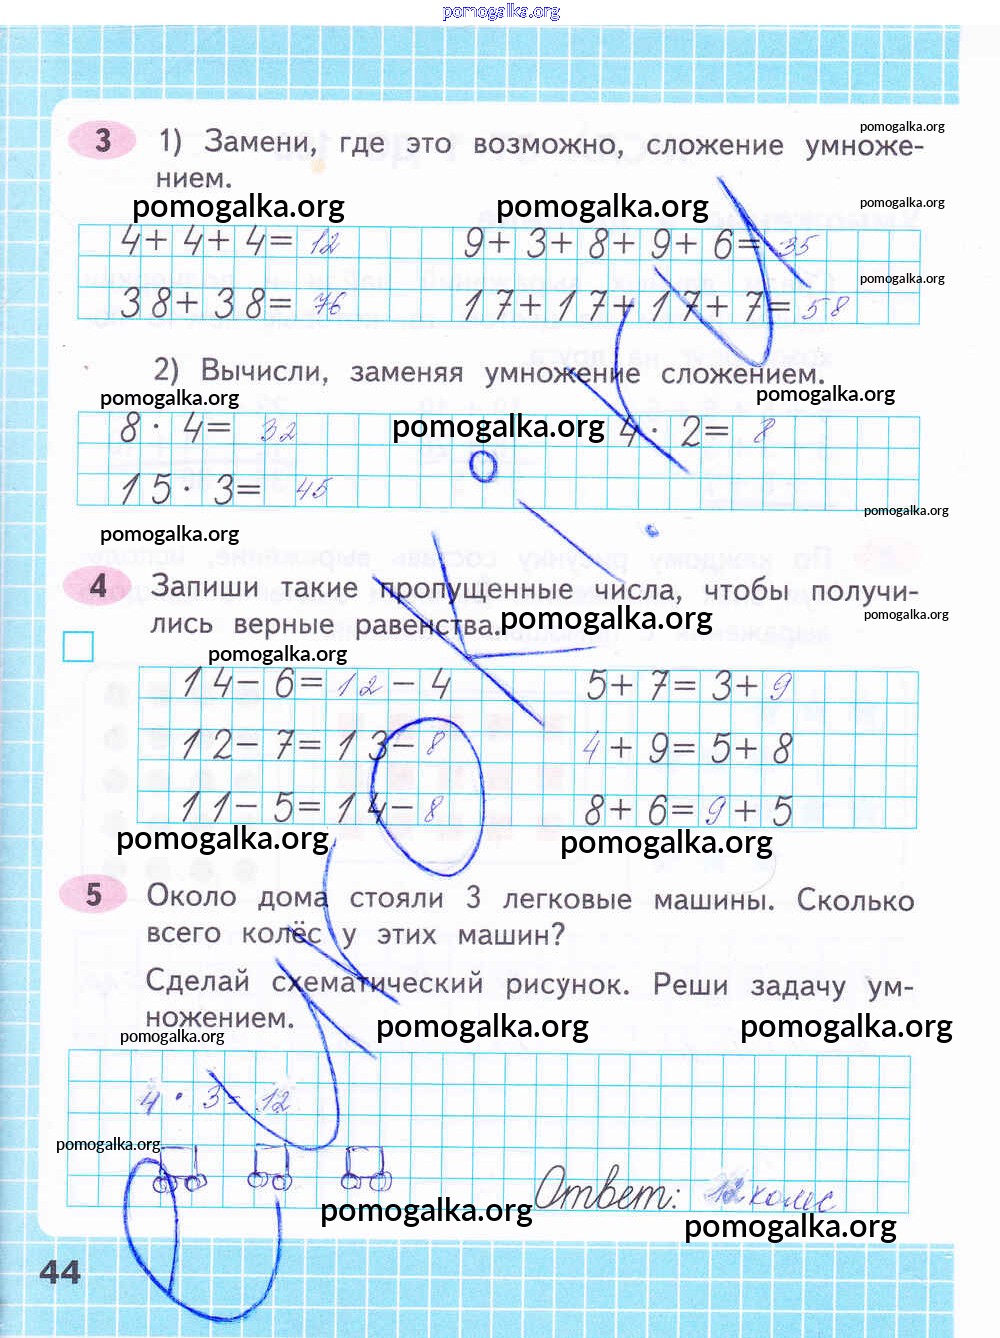 pomogalka.org
pomogalka.org
3 1) Замени, где это возможно, сложение умноже-
нием.
pomogalka.org pomogalka.org pomogalka.org
4+ 4+ 4= 12 9+ 3+ 8+ 9+ 6= 35
pomogalka.org
38+ 38= 76 17+ 17+ 17+ 7= 58
2) Вычисли, заменяя умножение сложением.
pomogalka.org pomogalka.org
8· 4= 32 pomogalka.org 4· 2= 8
15· 3= 45
pomogalka.org
pomogalka.org
4 Запиши такие пропущенные числа, чтобы получи-
лись верные равенства. pomogalka.org pomogalka.org
pomogalka.org
14- 6= 12 - 4 5+ 7= 3+ 9
12- 7= 13- 8 4 + 9= 5+ 8
11- 5= 14- 8 8+ 6= 9 + 5
pomogalka.org pomogalka.org
5 Около дома стояли 3 легковые машины. Сколько
всего колёс у этих машин?
Сделай схематический рисунок. Реши задачу ум-
ножением.
pomogalka.org pomogalka.org pomogalka.org
4 · 3 = 12
pomogalka.org
Ответ: 12 колес
pomogalka.org pomogalka.org
44